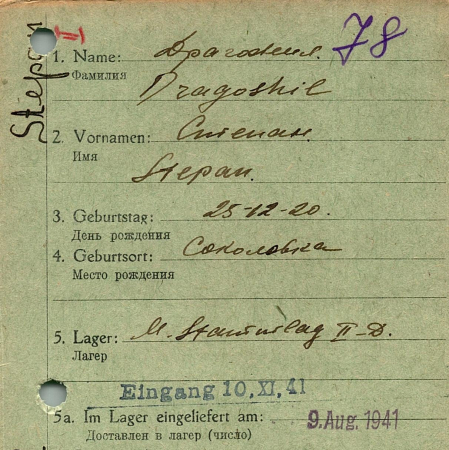 Stepan
I
78
1. Name: Драгожил.
Фамилия
Dragoshil
2. Vornamen: Степан.
Имя
Stepan.
3. Geburtstag: 25-12-20.
День рождения
4. Geburtsort: Соколовка
Место рождения
5. Lager: M. Stammlag II-D.
Лагер
Eingang 10. XI. 41
5a. Im Lager eingeliefert am: 9. Aug. 1941
Доставлен в лагер (число)